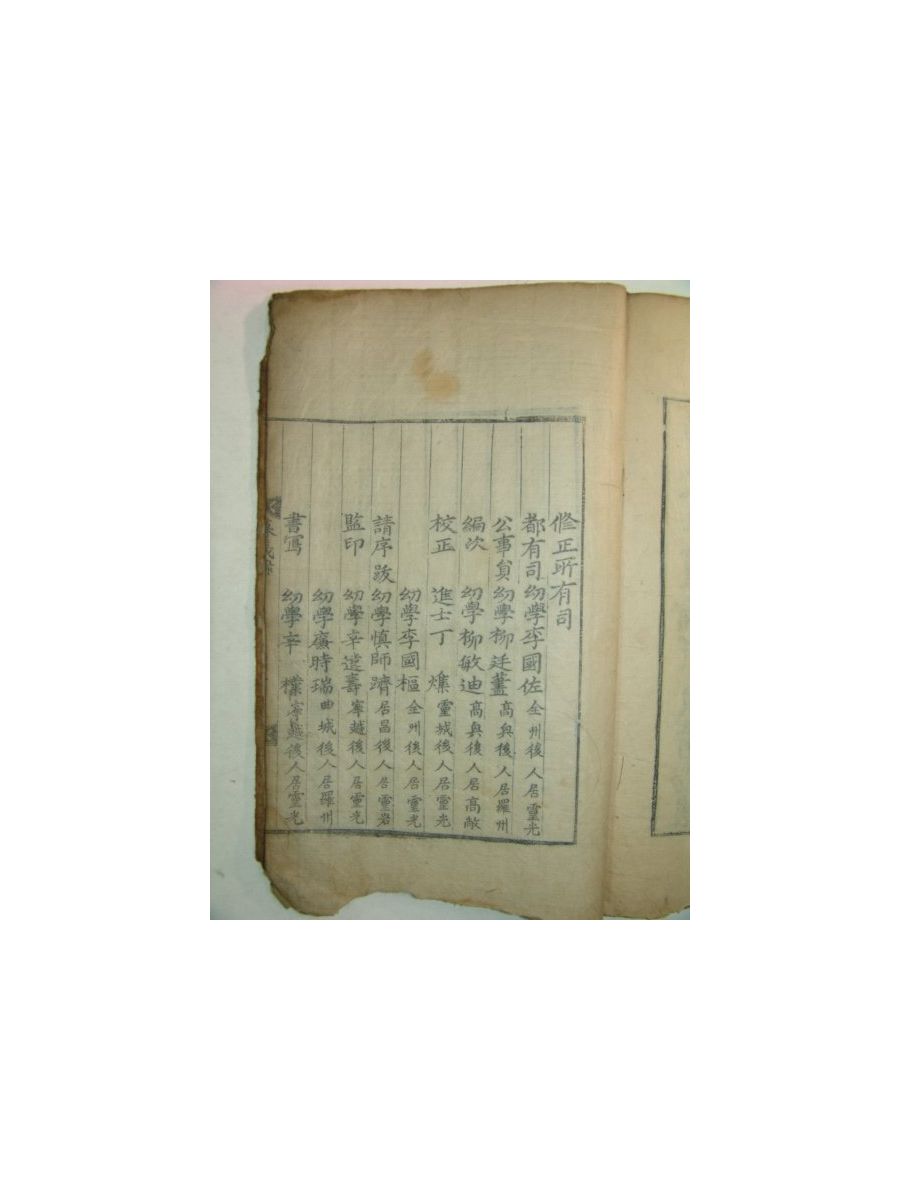 修正所有司
都有司 幼學李國佐 全州後人居靈光
公事員 幼學柳廷藎 高興後人居羅州
編次 幼學柳敏迪 高興後人居高敞
校正 進士丁 爑 靈城後人居靈光
幼學李國樞 全州後人居靈光
請序跋 幼學愼師躋 居昌後人居靈岩
監印 幼學辛遂壽 寧越後人居靈光
幼學廉時瑞 曲城後人居羅州
書寫 幼學辛 檏 寧越後人居靈光